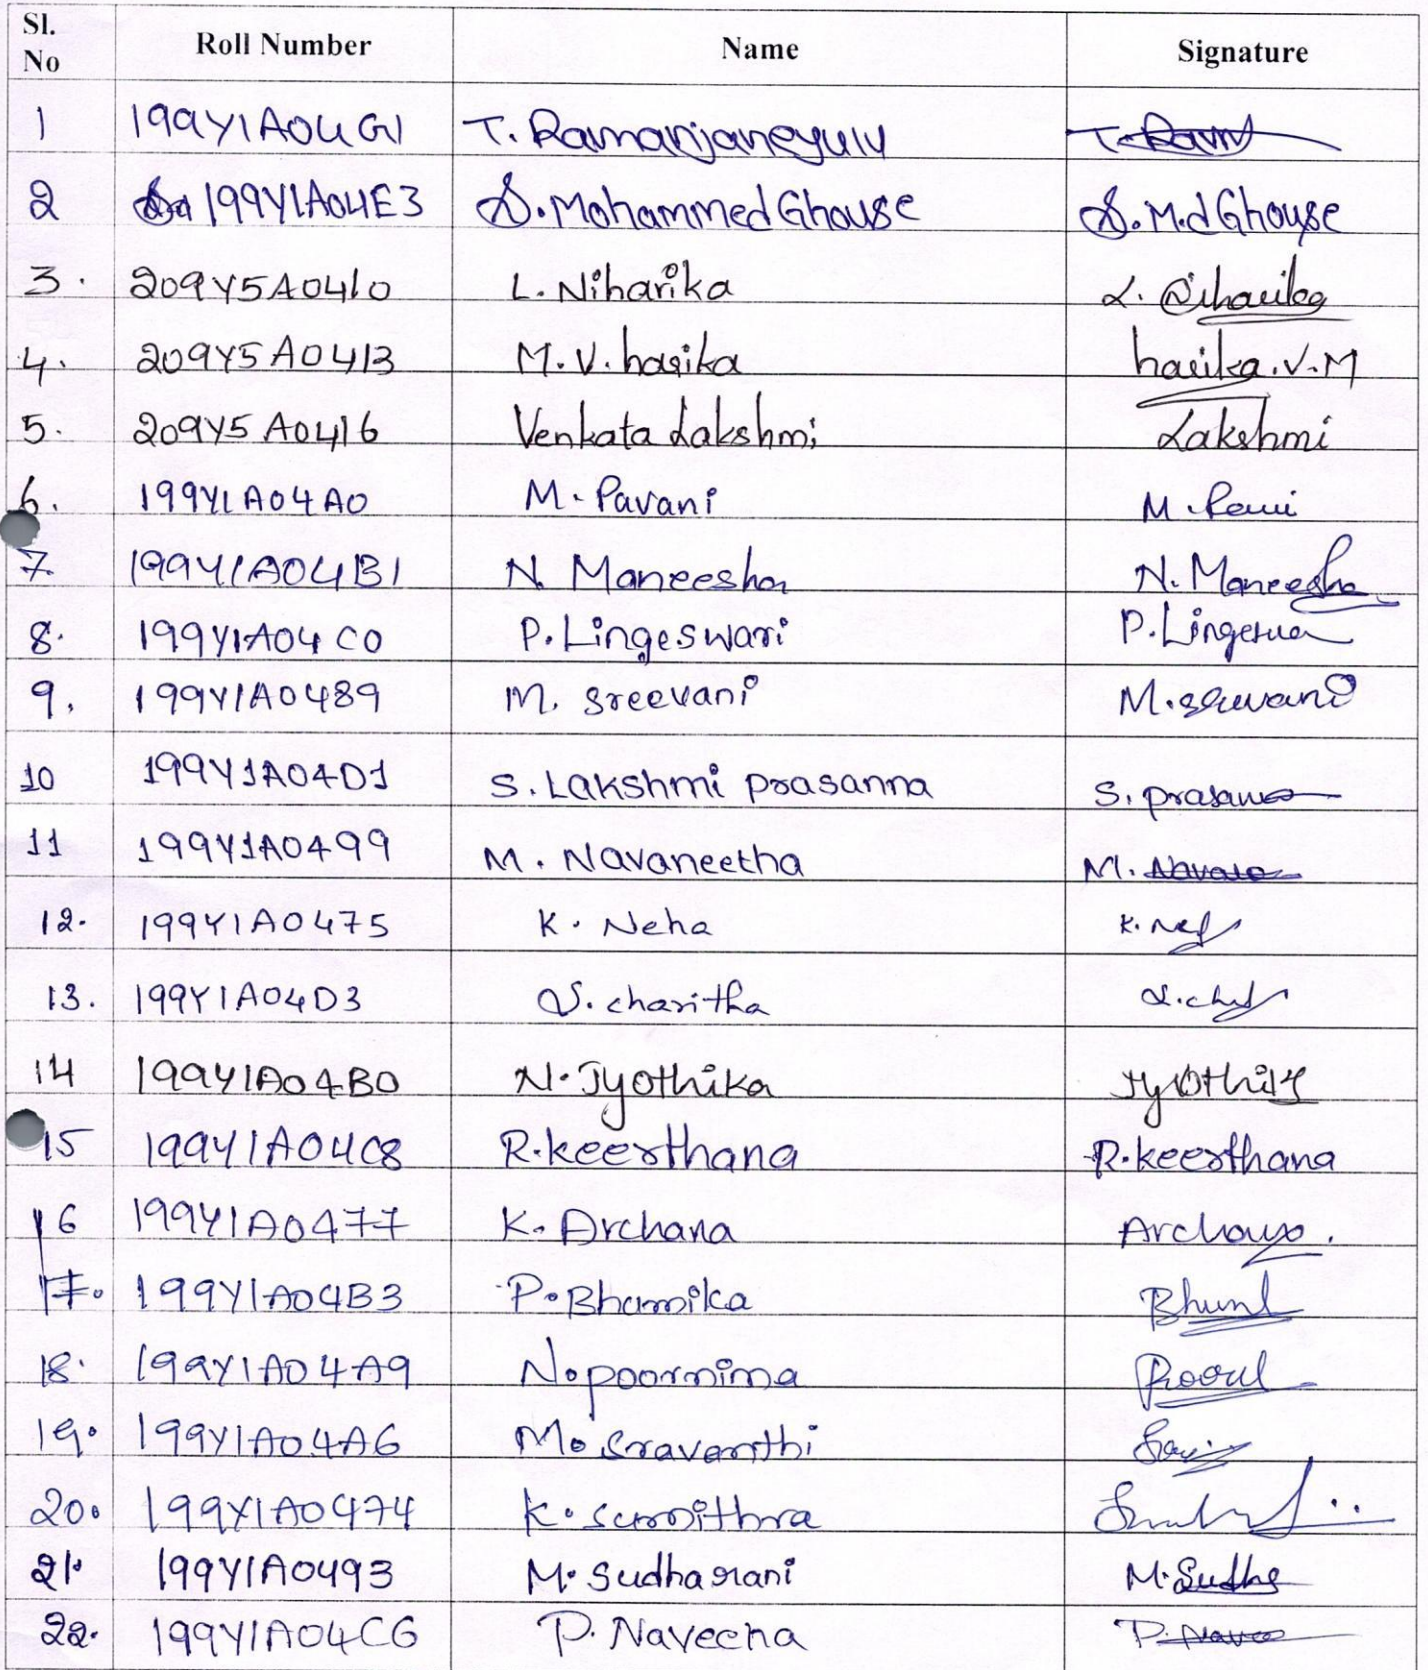 Sl. No Roll Number Name Signature
1 199Y1A04G1 T. Ramanjaneyulu T. Ram
2 199Y1A04E3 S. Mohammed Ghouse S. M.d Ghouse
3. 209Y5A0410 L. Niharika L. Niharika
4. 209Y5A0413 M. V. harika harika. V. M
5. 209Y5A0416 Venkata Lakshmi Lakshmi
6. 199Y1A04A0 M. Pavani M.
7. 199Y1A04B1 N. Maneesha N. Maneesha
8. 199Y1A04C0 P. Lingeswari P. Lingeswa
9. 199Y1A0489 M. sreevani M. sreevani
10 199Y1A04D1 S. Lakshmi prasanna S. prasanna
11 199Y1A0499 M. Navaneetha M.
12. 199Y1A0475 K. Neha K. Neh
13. 199Y1A04D3 S. charitha S.
14 199Y1A04B0 N. Jyothika Jyothik
15 199Y1A04C8 R. keerthana R. keerthana
16 199Y1A0477 K. Archana Archana.
17. 199Y1A04B3 P. Bhumika
18. 199Y1A04A9 N. poornima
19. 199Y1A04A6 M. sravanthi
20. 199Y1A0474 K. sumithra
21. 199Y1A0493 M. Sudharani M. Sudha
22. 199Y1A04C6 P. Naveena P.